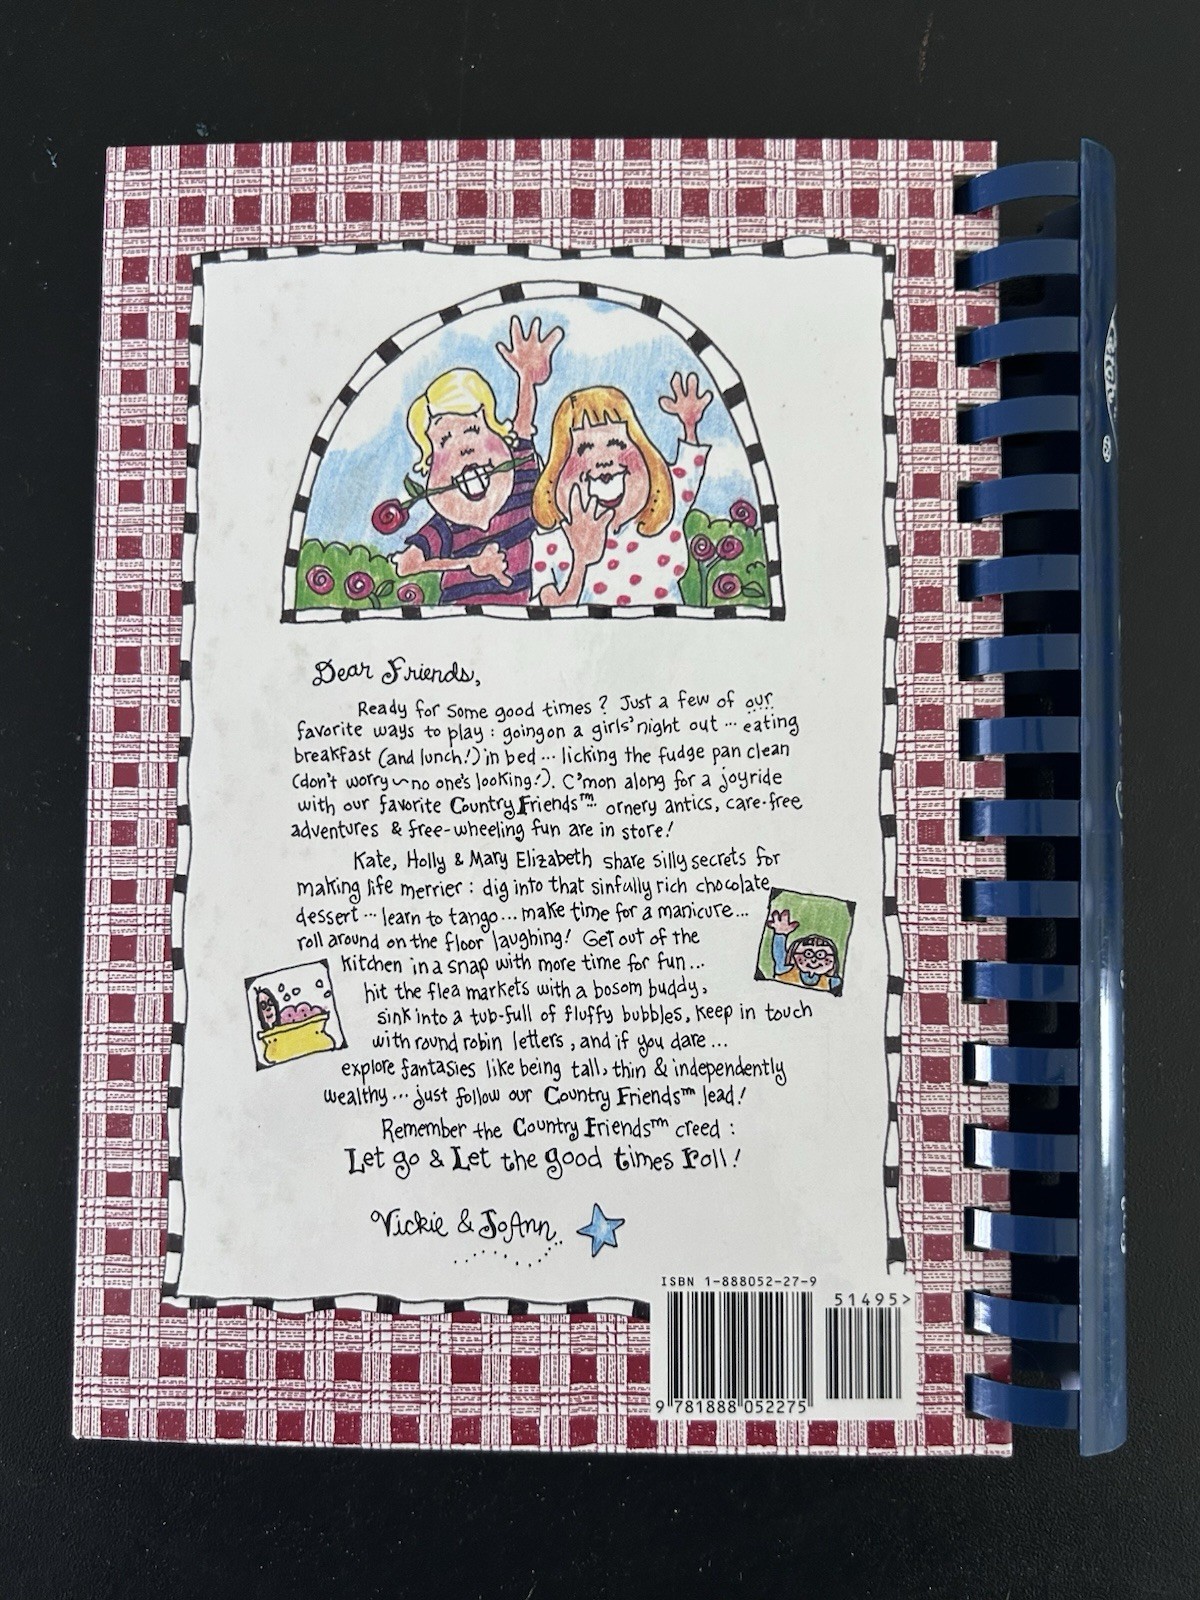 Dear Friends,
Ready for some good times? Just a few of our
favorite ways to play: going on a girls' night out ... eating
breakfast (and lunch!) in bed ... licking the fudge pan clean
(don't worry ~ no one's looking!). C'mon along for a joyride
with our favorite Country Friends™... ornery antics, care-free
adventures & free-wheeling fun are in store!
Kate, Holly & Mary Elizabeth share silly secrets for
making life merrier: dig into that sinfully rich chocolate
dessert ... learn to tango ... make time for a manicure...
roll around on the floor laughing! Get out of the
kitchen in a snap with more time for fun ...
hit the flea markets with a bosom buddy,
sink into a tub-full of fluffy bubbles, keep in touch
with round robin letters, and if you dare ...
explore fantasies like being tall, thin & independently
wealthy ... just follow our Country Friends™ lead!
Remember the Country Friends™ creed:
Let go & Let the good times roll!
Vickie & JoAnn
ISBN 1-888052-27-9
51495>
9 781888 052275